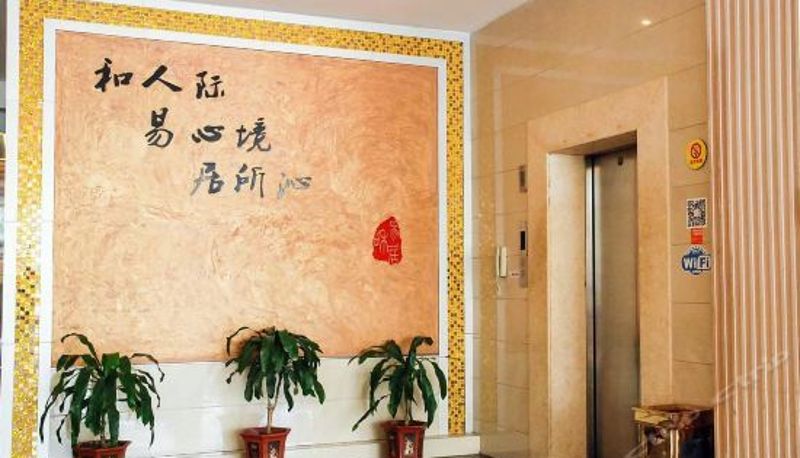 和人际
易心境
居所沁
WiFi